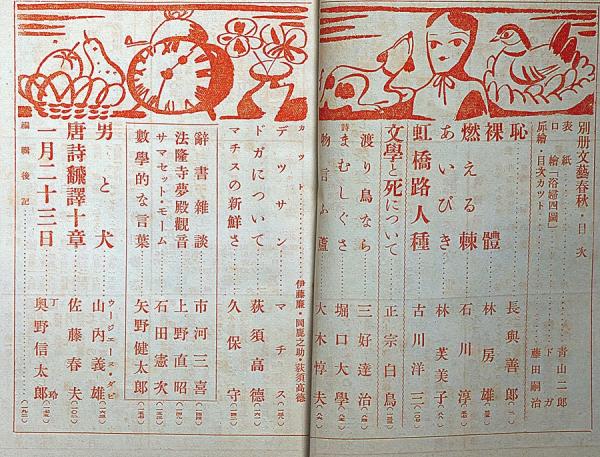 別册文藝春秋・目次
表紙 青山二郎
口繪「浴婦四圖」 ドガ
扉繪・目次カット 藤田嗣治
恥 長與善郎
裸體 林房雄
燃える棘 石川淳
あいびき 林芙美子
虹橋路人種 古川洋三
文學と死について 正宗白鳥
渡り鳥なら 三好達治
詩 まむしぐさ 堀口大學
物言ふ蘆 大木惇夫
カット 伊藤廉・岡鹿之助・荻須高德
デツサン マチス
ドガについて 荻須高德
マチスの新鮮さ 久保守
辭書雜談 市河三喜
法隆寺夢殿觀音 上野直昭
サマセット・モーム 石田憲次
數學的な言葉 矢野健太郎
男と犬 ウージェーヌ・ダビ 山内義雄
唐詩飜譯十章 佐藤春夫
一月二十三日 丁玲 奥野信太郎
編輯後記